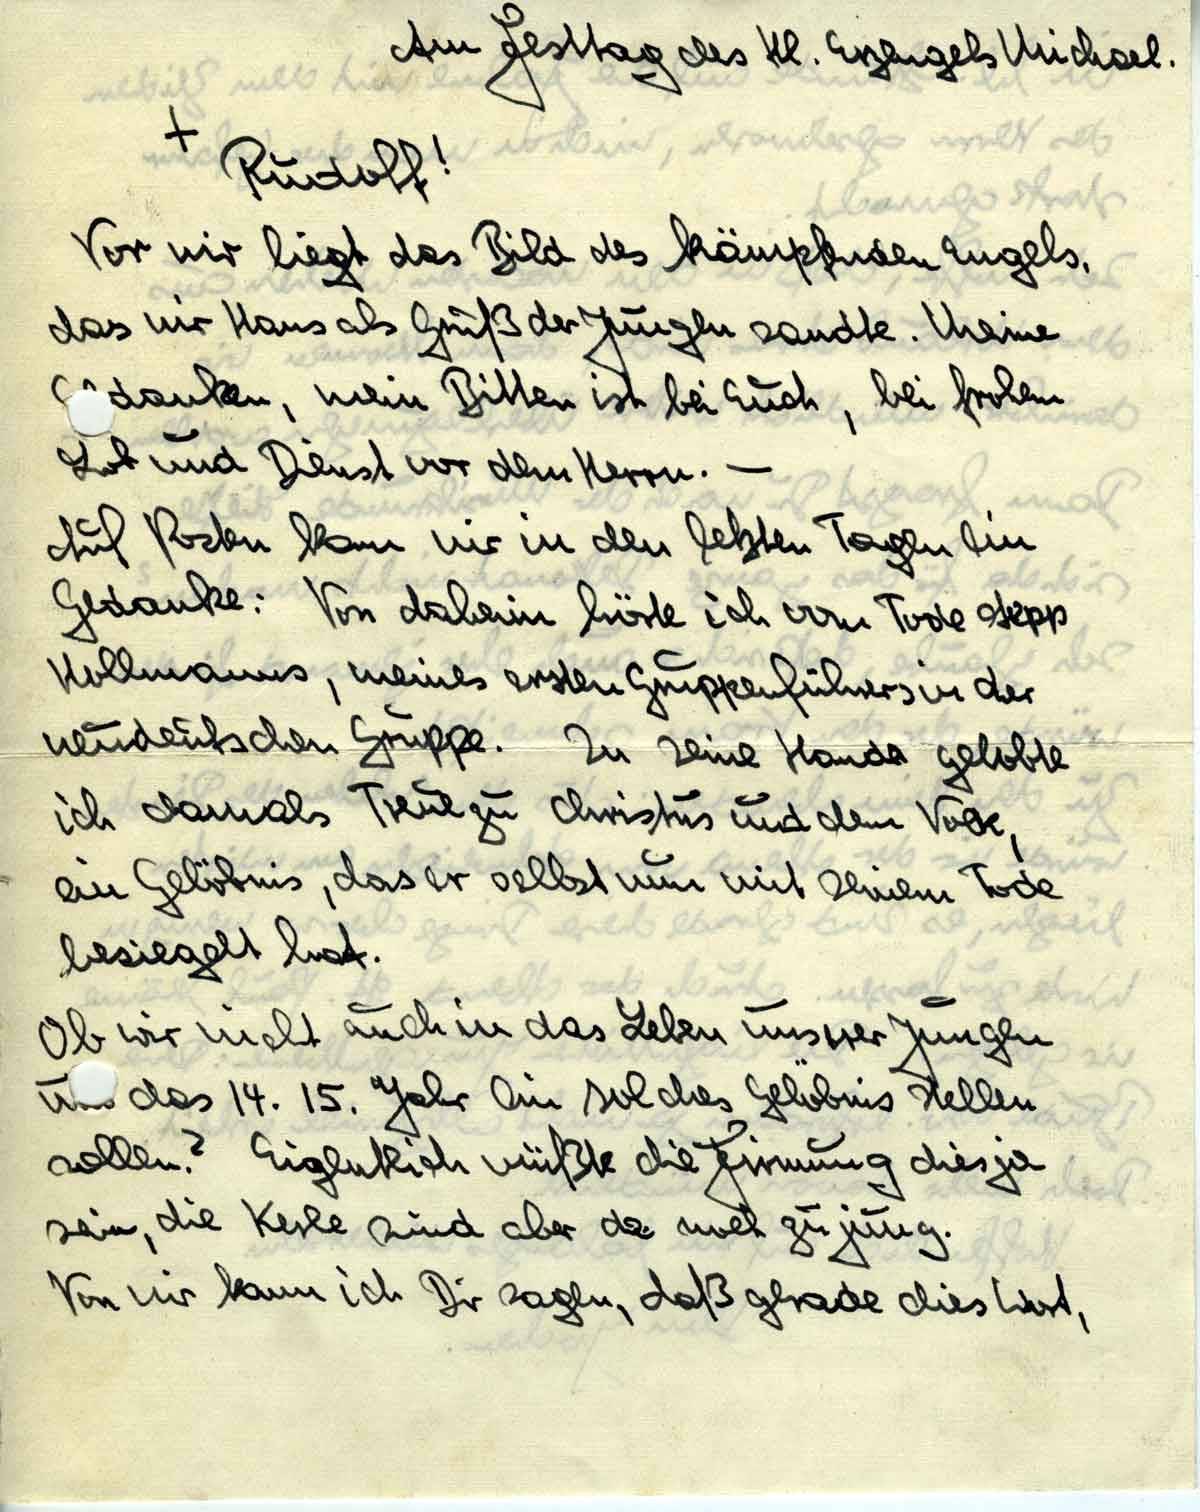 Am Festtag des Hl. Erzengels Michael.
+
Rudolf!
Vor mir liegt das Bild des kämpfenden Engels,
das mir Hans als Gruß der Jungen sandte. Meine
Gedanken, mein Bitten ist bei Euch, bei frohem
Lob und Dienst vor dem Herrn. —
Auf Posten kam mir in den letzten Tagen ein
Gedanke: Von daheim hörte ich vom Tode Sepp
Hollmanns, meines ersten Gruppenführers in der
neudeutschen Gruppe. In seine Hände gelobte
ich damals Treue zu Christus und dem Volk,
ein Gelöbnis, das er selbst nun mit seinem Tode
besiegelt hat.
Ob wir nicht auch in das Leben unserer Jungen
um das 14. 15. Jahr ein solches Gelöbnis stellen
sollen? Eigentlich müßte die Firmung dies ja
sein, die Kerle sind aber da noch zu jung.
Von mir kann ich Dir sagen, daß gerade dies Wort,